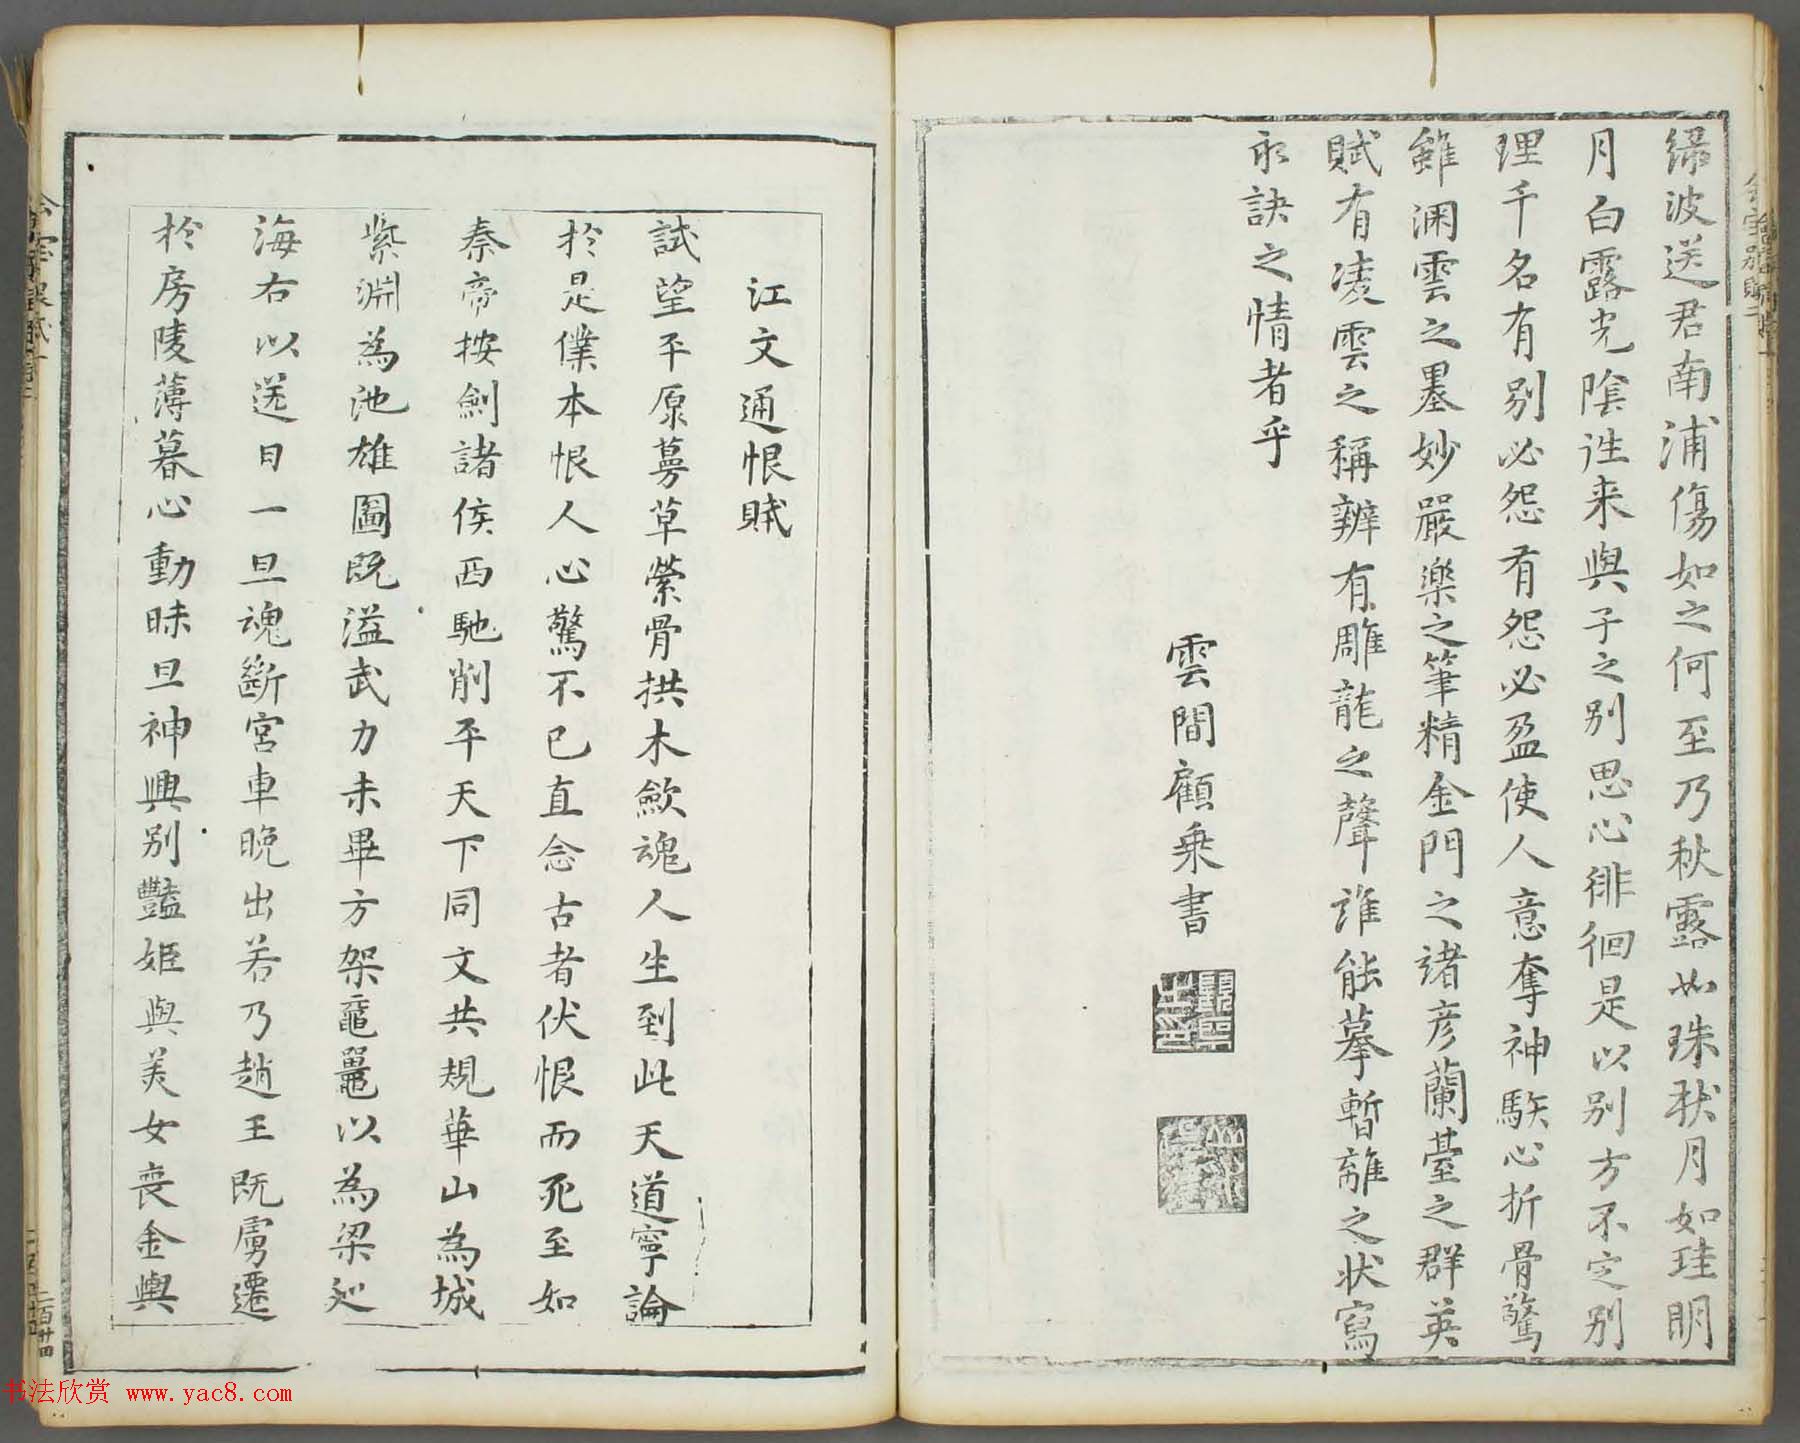 綠波送君南浦傷如之何至乃秋露如珠秋月如珪明
月白露光陰往来與子之别思心徘徊是以别方不定别
理千名有别必怨有怨必盈使人意奪神駭心折骨驚
雖淵雲之墨妙嚴樂之筆精金門之諸彦蘭臺之群英
賦有凌雲之稱辨有雕龍之聲誰能摹暫離之状寫
永訣之情者乎
雲間顧乗書
江文通恨賦
試望平原蔓草縈骨拱木斂魂人生到此天道寧論
於是僕本恨人心驚不已直念古者伏恨而死至如
秦帝按劍諸侯西馳削平天下同文共規華山為城
紫淵為池雄圖既溢武力未畢方架黿鼉以為梁巡
海右以送日一旦魂斷宮車晚出若乃趙王既虜遷
於房陵薄暮心動昧旦神興别豔姬與美女喪金輿
二百廿四
书法欣赏 www.yac8.com